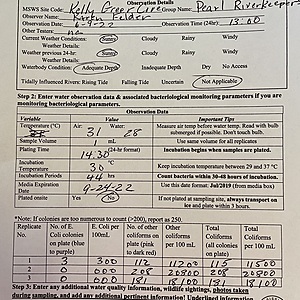 Observation Details
MSWS Site Code: Kelly Creek Pearl Riverkeeper
Observer Name:
Observation Date: 6-9-22 Observation Time (24hr): 13:00
Other Testers: na
Current Weather Conditions: Sunny Cloudy Rainy Windy
Weather previous 24-hr: Sunny Cloudy Rainy Windy
Weather Conditions:
Waterbody Condition: Adequate Depth Inadequate Depth Dry No Access
Tidally Influenced Rivers: Rising Tide Falling Tide Uncertain Not Applicable
Step 2: Enter water observation data & associated bacteriological monitoring parameters if you are monitoring bacteriological parameters.
Observation Data
Variable Value Important Tips
Temperature (°C) Air: 31 Water: 28 Measure air temp before water temp. Read with bulb submerged if possible. Don't touch bulb.
Sample Volume 1 mL Use same volume for all replicates
Plating Time 14:30 (24-hr format) Incubation begins when samples are plated.
Incubation Temperature 30 °C Keep incubation temperature between 29 and 37 °C
Incubation Periods 44 hrs Count bacteria within 30-48 hours of incubation.
Media Expiration Date 9-24-22 Use this date format: Jul/2019 (from media box)
Plated onsite Yes No If not plated at sampling site, always transport on ice and plate within 3 hours.
*Note: If colonies are too numerous to count (>200), report as 250.
Replicate No. No. of E. Coli colonies on plate (blue to purple) E. Coli per 100mL No. of other coliforms on plate (pink to dark red) Other coliforms per 100 mL Total coliforms (all colonies on plate) Total Coliforms per 100 mL
1 3 300 112 11200 115 11500
2 0 000 208 20800 208 20800
3 0 000 181 18100 181 18100
Step 3: Enter any additional water quality information, wildlife sightings, photos taken during sampling, and add any additional pertinent information!